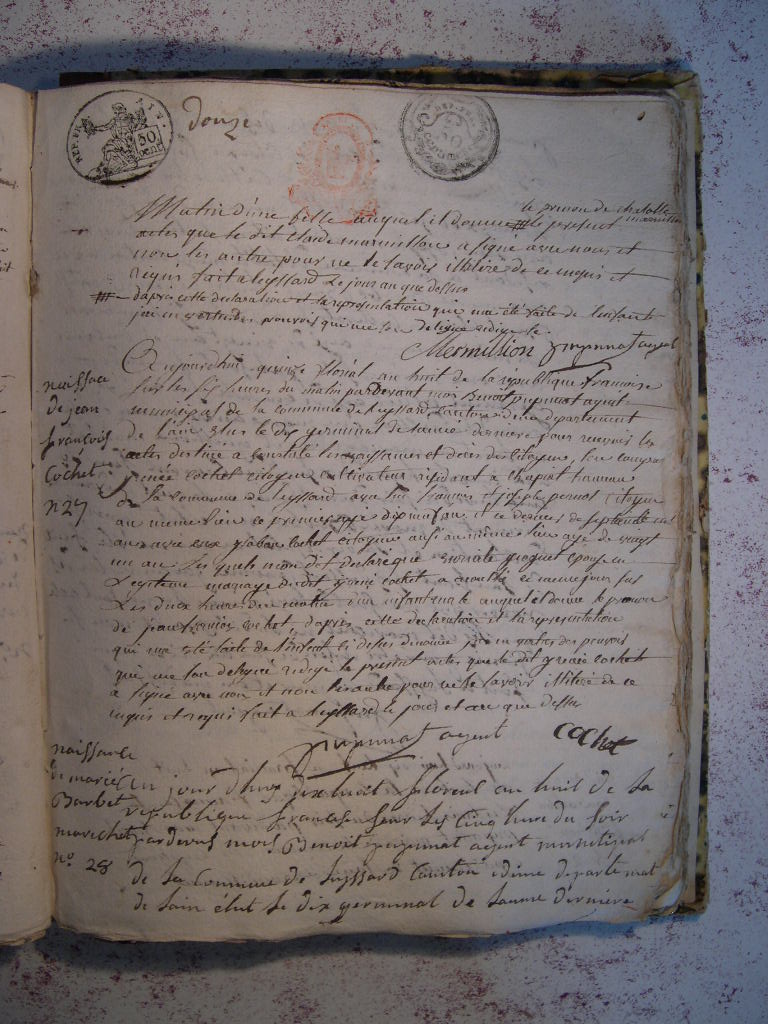 REP. FRA. 50 cent
douze
le prenom de charlotte
Matin d'une fille auquel il donne # le present marmillon
actes que le dit Claude marmillon a signé avec nous et
non les autre pour ne le savoir illitéré de ce inquis et
requis fait a leyssard le jour an que dessus
# d'apres cette declaration et la representation qui ma été faite de l'enfant
j'ai en vertu des pouvoirs qui me son delegué redige le
Mermillion pupunat agent
naissace
de jean
françois
Cochet
n 27
Ce aujourdhui quinze floréal an huit de la republique francaise
sur les six heures du matin par devant moi Benoit pupunat agent
municipal de la commune de leyssard canton didem departement
de l'ain élus le dix germinal de l'année derniere pour recevoir les
actes destiné a constaté les naissances et déces des citoyens, son comparu
cochet citoyen cultivateur residant a
de la commune de leyssard avec lui françois et joseph pernod citoyen
au meme lieu ce premier age dixneuf an et ce dernier de septente
ans avec eux cochet citoyenne aussi au meme lieu age de vingt
un an les quels mon dit declaré que epouse en
legitime mariage du dit cochet a acouché ce meme jour sus
les deux heure du matin d'un enfant male auquel il donne le prenom
de jean francois cochet, d'apres cette declaration et la representation
qui ma eté faite de l'enfant si dessus denommé j'ai en vertu des pouvoirs
que me son delegué redigé le present actes que le dit cochet
a signé avec nou et non les autre pour ne le savoir illitéré de ce
inquis et requis fait a leyssard le jour et an que dessus
pupunat agent cochet
naissance
de marie
Barbet
marichet
n° 28
cu jour dhuy dixhuit floreal an huit de la
republique francaise sur les cinq heure du soir
par devant mois Benoit pupunat agent municipal
de la Commune de leyssard Canton idime departemat
de lain élut le dix germinal de lanne derniere